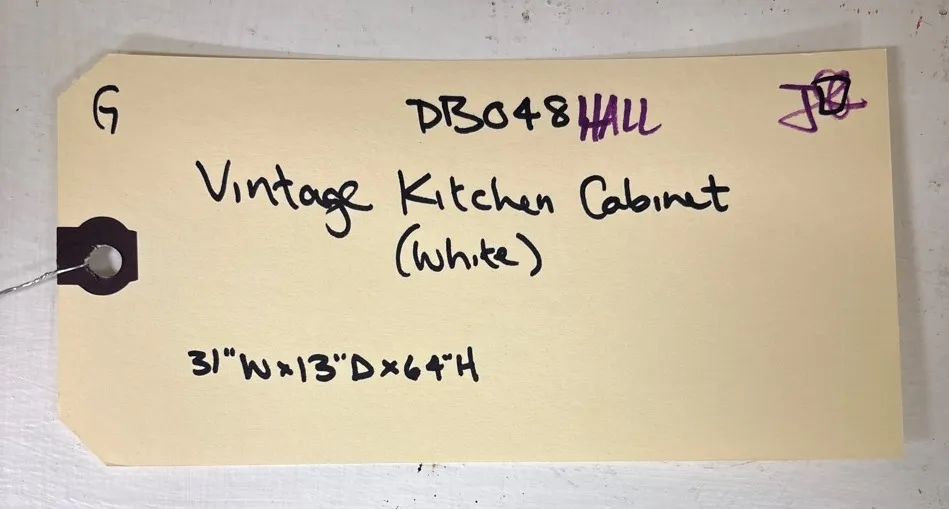 G DB048 HALL
Vintage Kitchen Cabinet
(White)
31"W x 13"D x 64"H